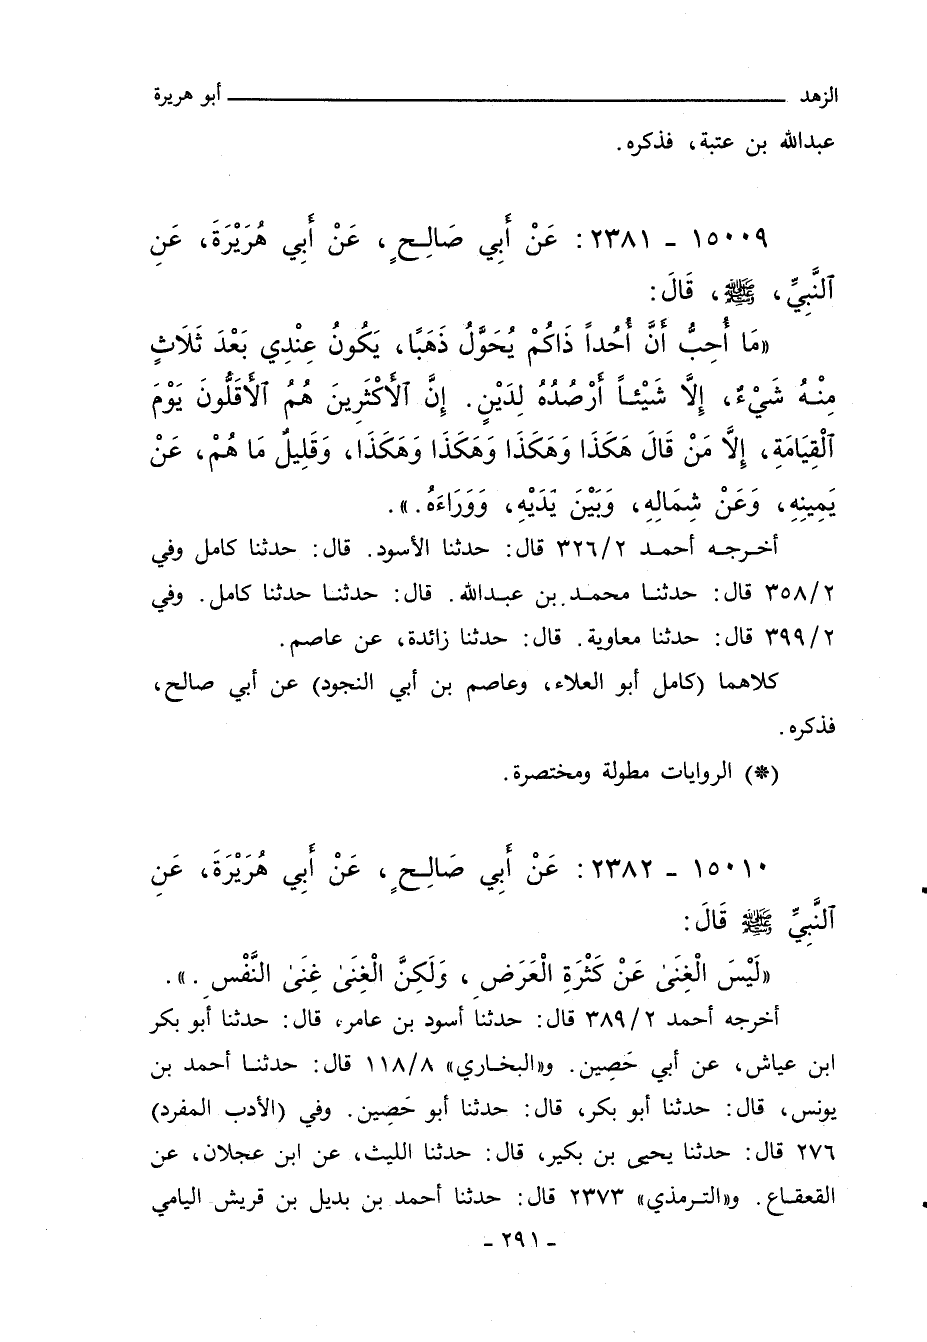 الزهد ـــــــــــــــــــــ أبو هريرة
عبدالله بن عتبة، فذكره.
١٥٠٠٩ - ٢٣٨١: عَنْ أَبِي صَالِحٍ، عَنْ أَبِي هُرَيْرَةَ، عَنِ
ٱلنَّبِيِّ، ﷺ، قَالَ:
«مَا أُحِبُّ أَنَّ أُحُداً ذَاكُمْ يُحَوَّلُ ذَهَبًا، يَكُونُ عِنْدِي بَعْدَ ثَلَاثٍ
مِنْهُ شَيْءٌ، إِلَّا شَيْئاً أَرْصُدُهُ لِدَيْنٍ. إِنَّ ٱلْأَكْثَرِينَ هُمُ ٱلْأَقَلُّونَ يَوْمَ
ٱلْقِيَامَةِ، إِلَّا مَنْ قَالَ هَكَذَا وَهَكَذَا وَهَكَذَا وَهَكَذَا، وَقَلِيلٌ مَا هُمْ، عَنْ
يَمِينِهِ، وَعَنْ شِمَالِهِ، وَبَيْنَ يَدَيْهِ، وَوَرَاءَهُ.».
أخرجه أحمد ٣٢٦/٢ قال: حدثنا الأسود. قال: حدثنا كامل وفي
٣٥٨/٢ قال: حدثنا محمد بن عبدالله. قال: حدثنا حدثنا كامل. وفي
٣٩٩/٢ قال: حدثنا معاوية. قال: حدثنا زائدة، عن عاصم.
كلاهما (كامل أبو العلاء، وعاصم بن أبي النجود) عن أبي صالح،
فذكره.
(*) الروايات مطولة ومختصرة.
١٥٠١٠ - ٢٣٨٢: عَنْ أَبِي صَالِحٍ، عَنْ أَبِي هُرَيْرَةَ، عَنِ
ٱلنَّبِيِّ ﷺ قَالَ:
«لَيْسَ الْغِنَىٰ عَنْ كَثْرَةِ الْعَرَضِ، وَلَكِنَّ الْغِنَىٰ غِنَىٰ النَّفْسِ.».
أخرجه أحمد ٣٨٩/٢ قال: حدثنا أسود بن عامر، قال: حدثنا أبو بكر
ابن عياش، عن أبي حَصِين. و«البخاري» ١١٨/٨ قال: حدثنا أحمد بن
يونس، قال: حدثنا أبو بكر، قال: حدثنا أبو حَصِين. وفي (الأدب المفرد)
٢٧٦ قال: حدثنا يحيى بن بكير، قال: حدثنا الليث، عن ابن عجلان، عن
القعقاع. و«الترمذي» ٢٣٧٣ قال: حدثنا أحمد بن بديل بن قريش اليامي
- ٢٩١ -